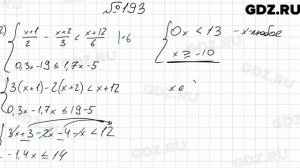 №193
GDZ.RU
2) { (x+1)/2 - (x+2)/3 < (x+12)/6 |·6
0,3x-19 ≤ 1,7x-5
{ 3(x+1)-2(x+2) < x+12
0,3x-1,7x ≤ 19-5
{ 3x+3-2x-4-x < 12
-1,4x ≤ 14
{ 0x < 13 - x-любое
x ≥ -10
x ∈
GDZ.RU